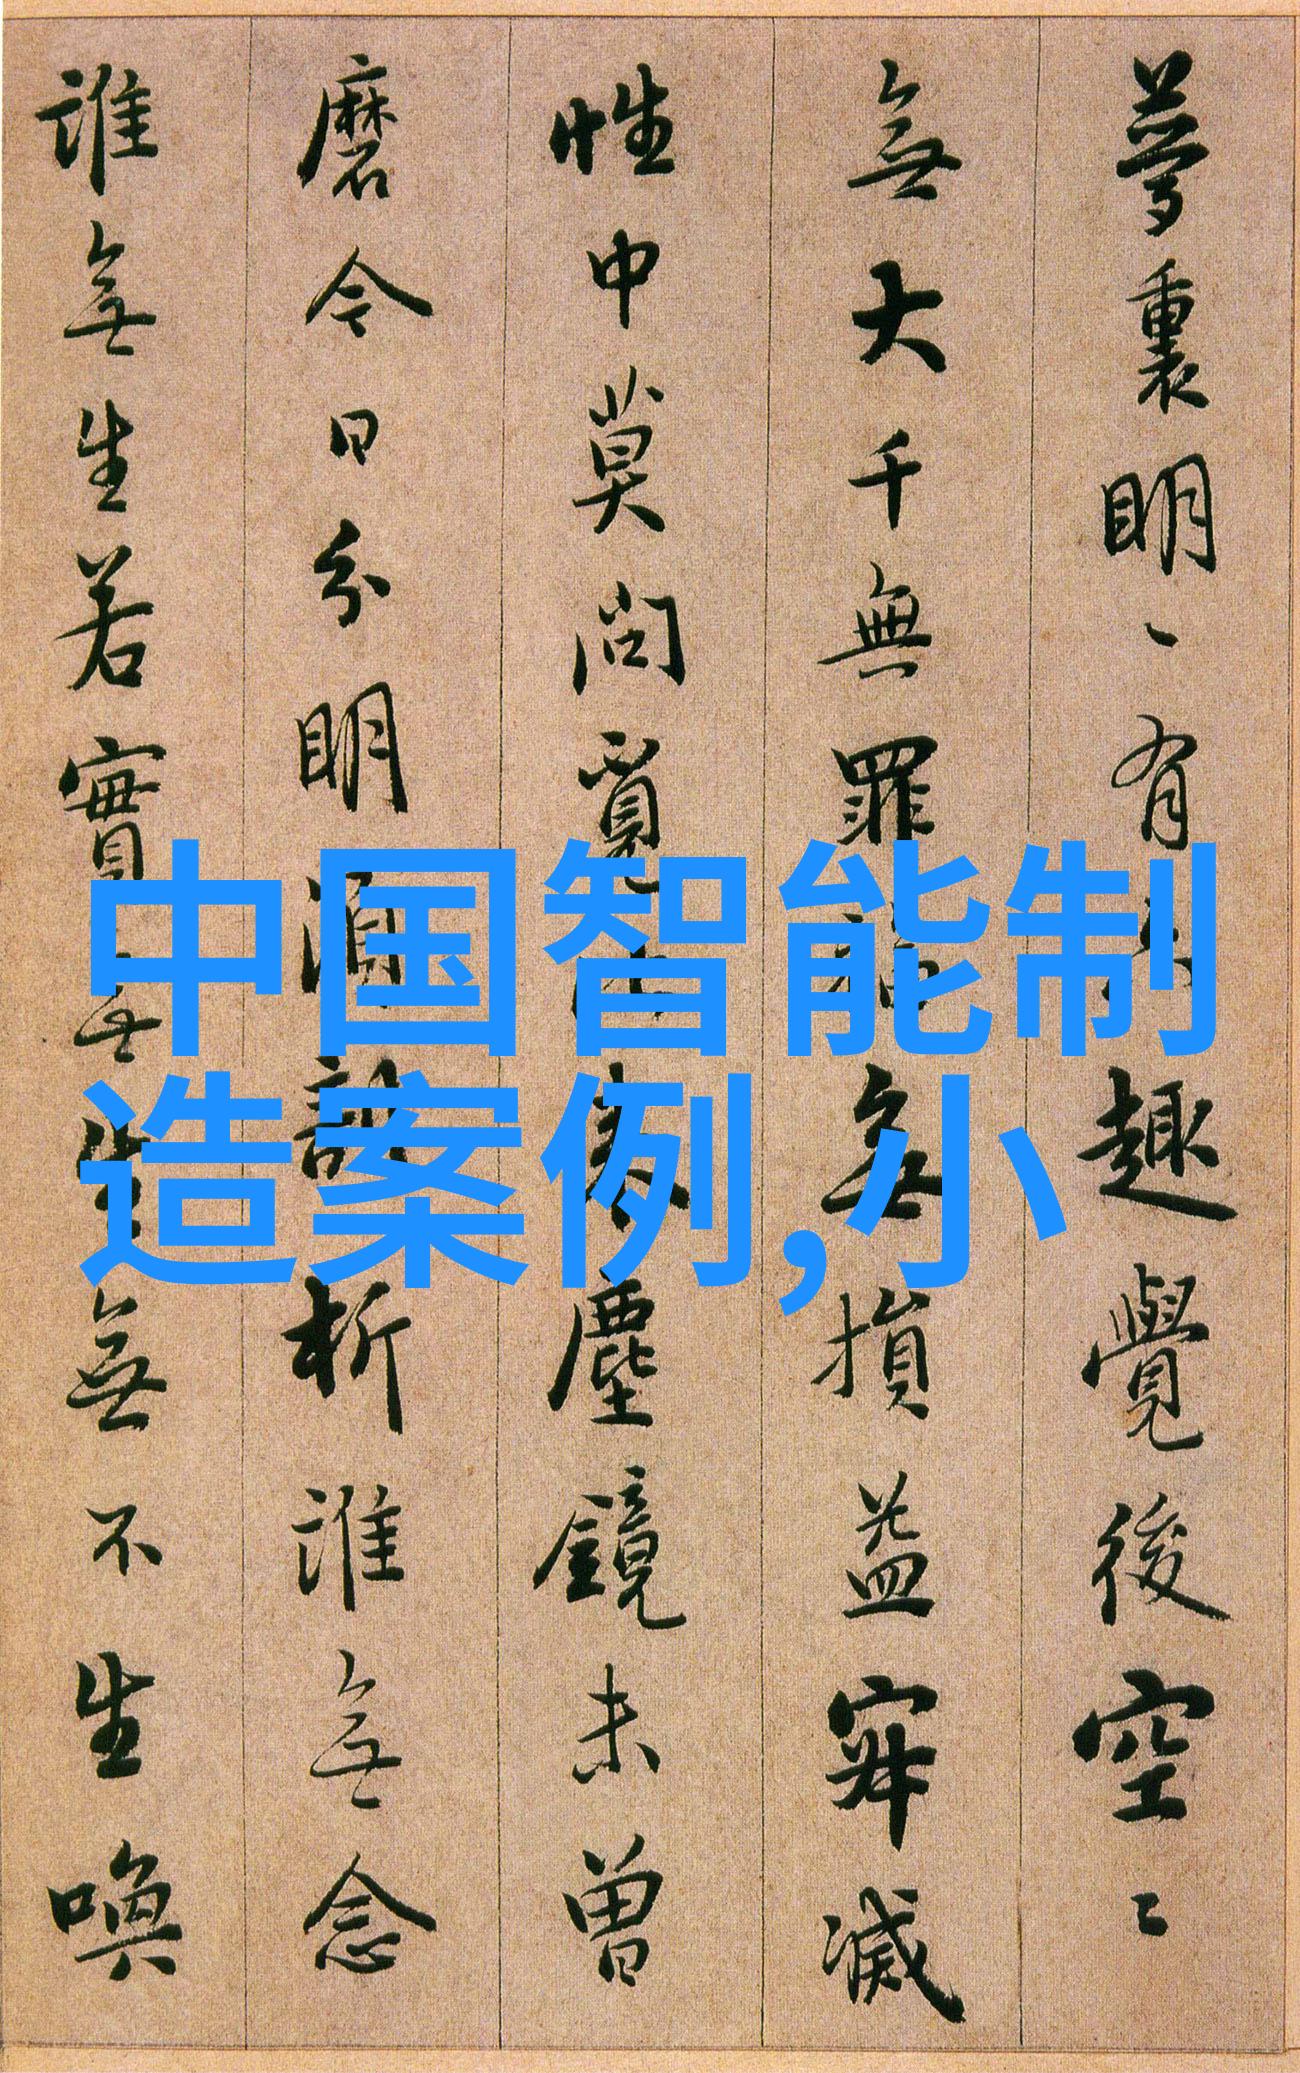 夢裏明〻有六趣覺後空〻
無大千無罪福無損益寂滅
性中莫問覓比來塵鏡未曾
磨今日分明須剖析誰無念
誰無生若實無生無不生喚
中国智能制
造案例,小